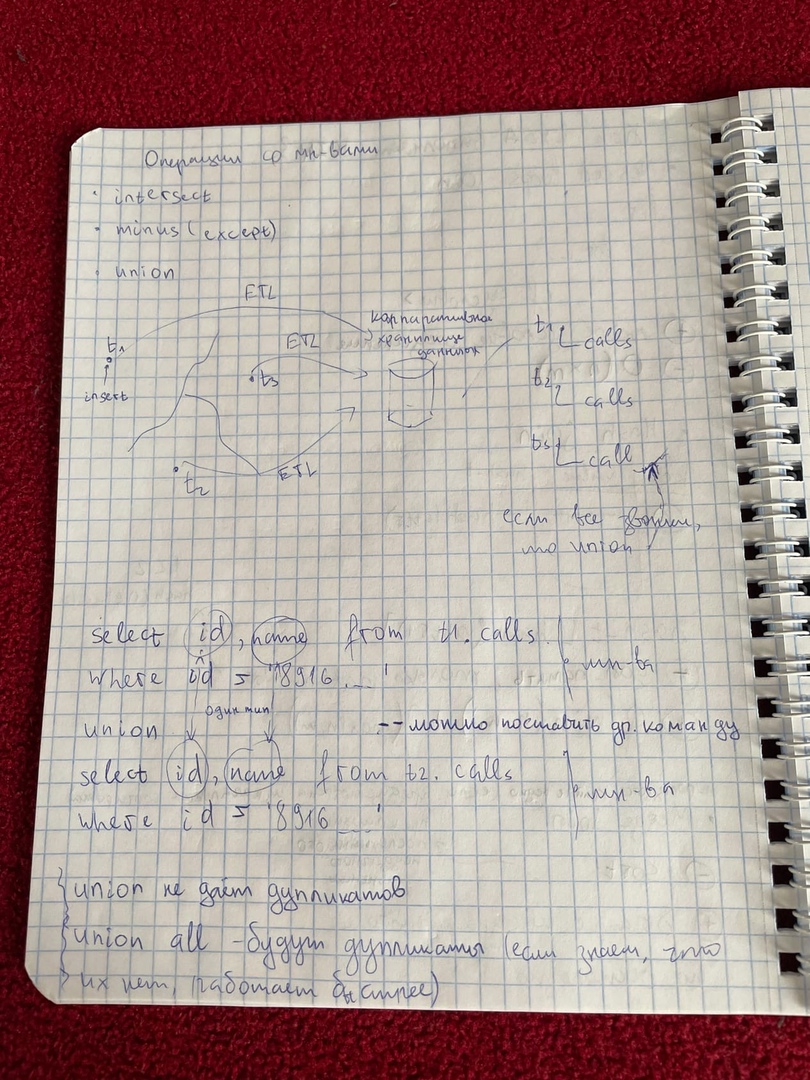 Операции со мн-вами
· intersect
· minus (except)
· union
ETL
t1
insert
ETL
t3
ETL
t2
карпаративное
хранилище
данных
t1
calls
t2
calls
t3
call
если все звонки,
то union
select id, name from t1. calls
where id = '8916...' } мн-ва
один тип
union -- можно поставить др. команду
select id, name from t2. calls
where id = '8916...' } мн-ва
union не даёт дупликатов
union all - будут дупликаты (если знаем, что
их нет, работает быстрее)